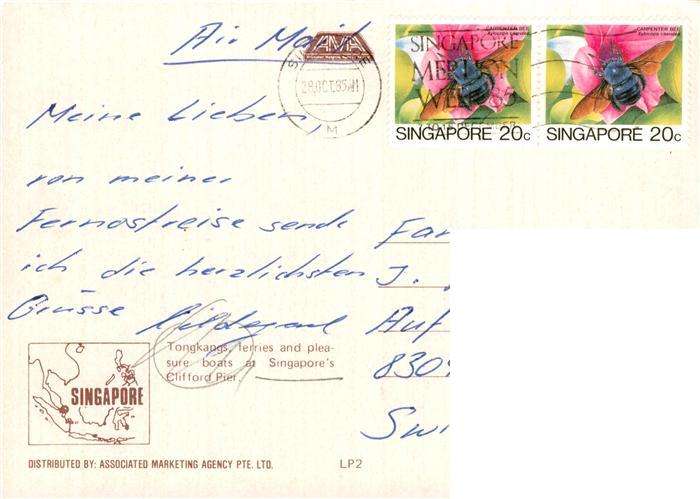 Air Mail
AMA
28 OCT 85
M
SINGAPORE
MERLION
WEEK 85
CARPENTER BEE
SINGAPORE 20c
CARPENTER BEE
SINGAPORE 20c
Meine Lieben,
von meiner
Fernostreise sende
ich die herzlichsten
Grüsse Hildegard
Tongkangs, ferries and plea-
sure boats at Singapore's
Clifford Pier.
SINGAPORE
DISTRIBUTED BY: ASSOCIATED MARKETING AGENCY PTE. LTD.
LP2
Fam
J.
Auf
8309
Swi